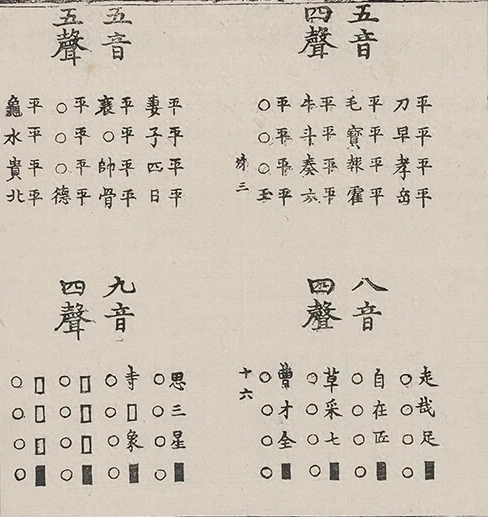 五音
四聲
平平平平
刀早孝岳
平平平平
毛寶報霍
平平平平
牛斗奏六
平平平平
○○○玉
三
八音
四聲
走哉足■
○○○○
自在匹■
○○○○
草采七■
○○○○
曹才全■
○○○○
十六
五音
五聲
平平平平
妻子四日
平平平平
衰○帥骨
平平平平
○○○德
平平平平
龜水貴北
九音
四聲
思三星■
○○○○
寺□象■
○○○○
□□□■
○○○○
□□□■
○○○○